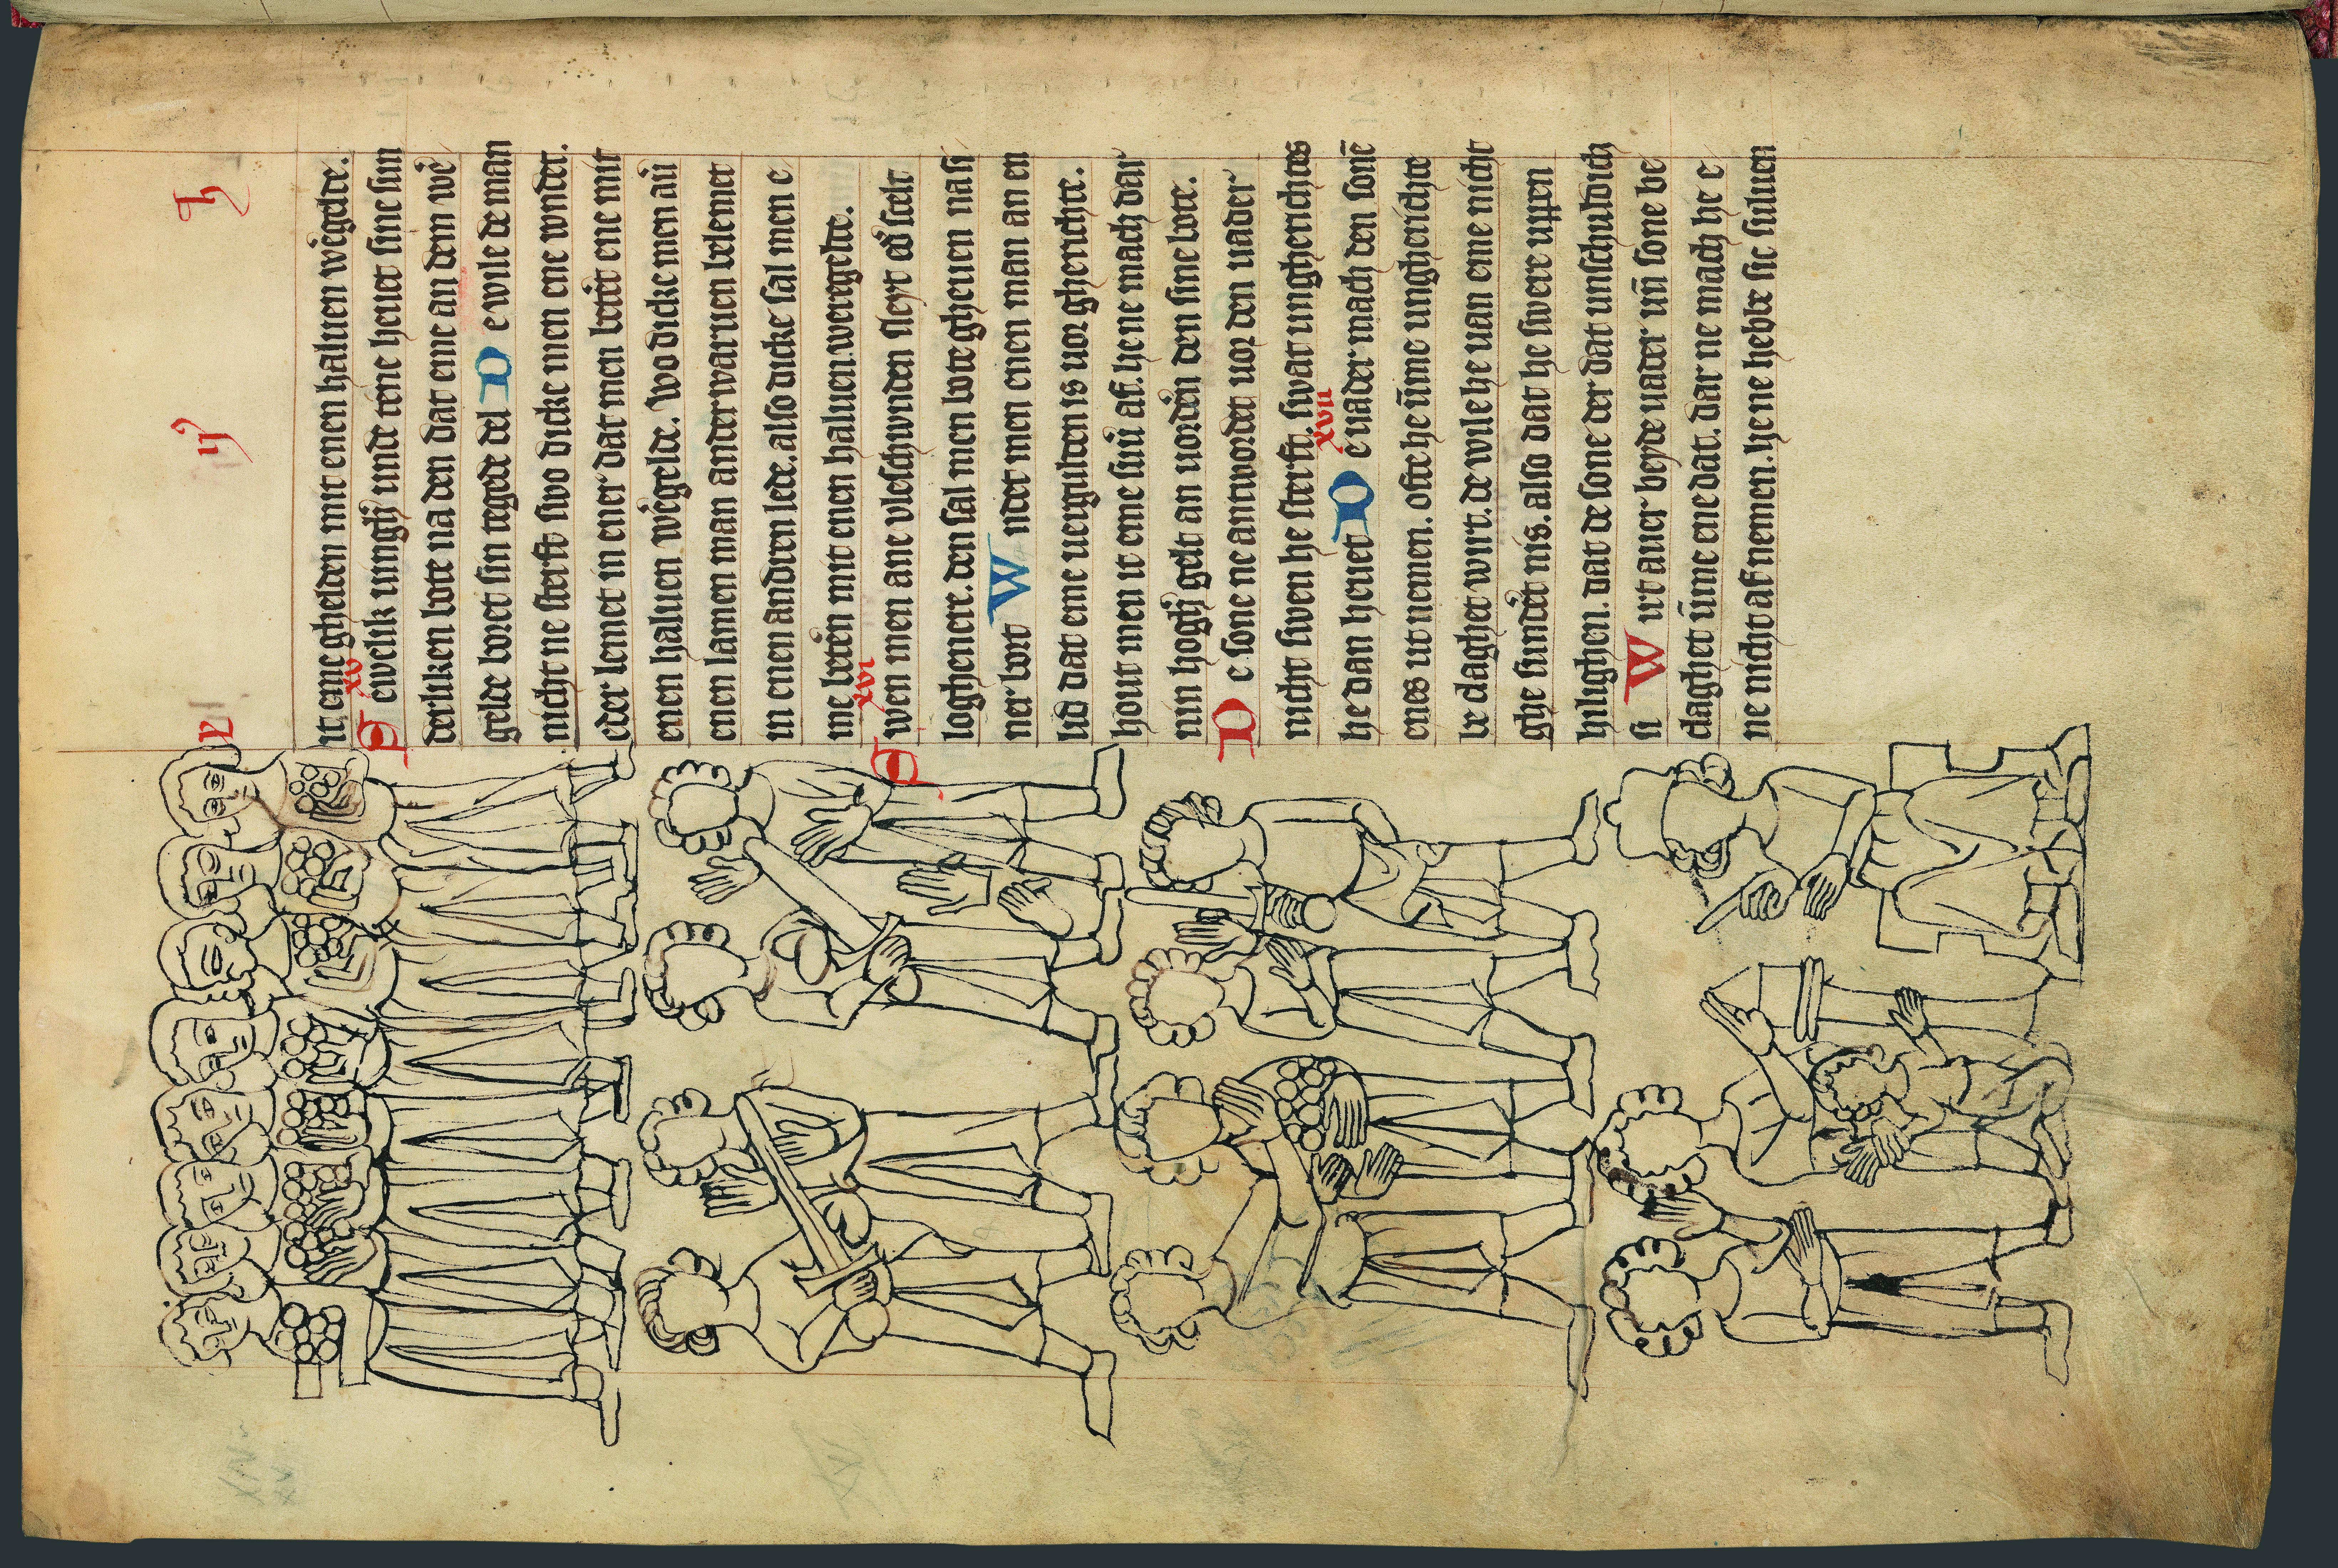 L ij b
it. iane ghelden mit enen haluen wėgelde.
xv
S ewelik uingh' unde tene heuet sine sun
derliken bote na den dat eme an dem wė
gelde boret sin tegede del D e wile de man
nicht ne sterft swo dicke men ene wndet.
eder lemet in ener dat men betėt ene mit
enen haluen wėgelde. Wo dicke men aū
enen lamen man anderwaruen belemet
in enen andren lede. also dicke sal men e
me beten mit enen haluen. weregelde.
xvi
S wen men ane vleschwnden sleyt ed' scelt
loghenere. den sal men bote gheuen na si
ner bort W ndet men enen man an en
lid dat eme uergulden is uor gherichte.
hout men it eme sint af. he ne mach dar
nin hogh' gelt an uordėn den sine bote.
D e sone ne antwordet uor den uader
nicht swen he sterft. swat ungherichtes
xvii
he dan heuet D e uader mach den sonē
enes ut nemen. ofte he ūme ungherichte
be claghet wirt. de wile he uan eme nicht
ghe sundėt nis. also dat he swere uppen
hilighen. dat de sone der dat unschuldich
si W irt auer beyde uader uñ sone be
claghet ūme ene dat. dar ne mach he e
ne nicht af nemen. he ne hebbe sic suluen